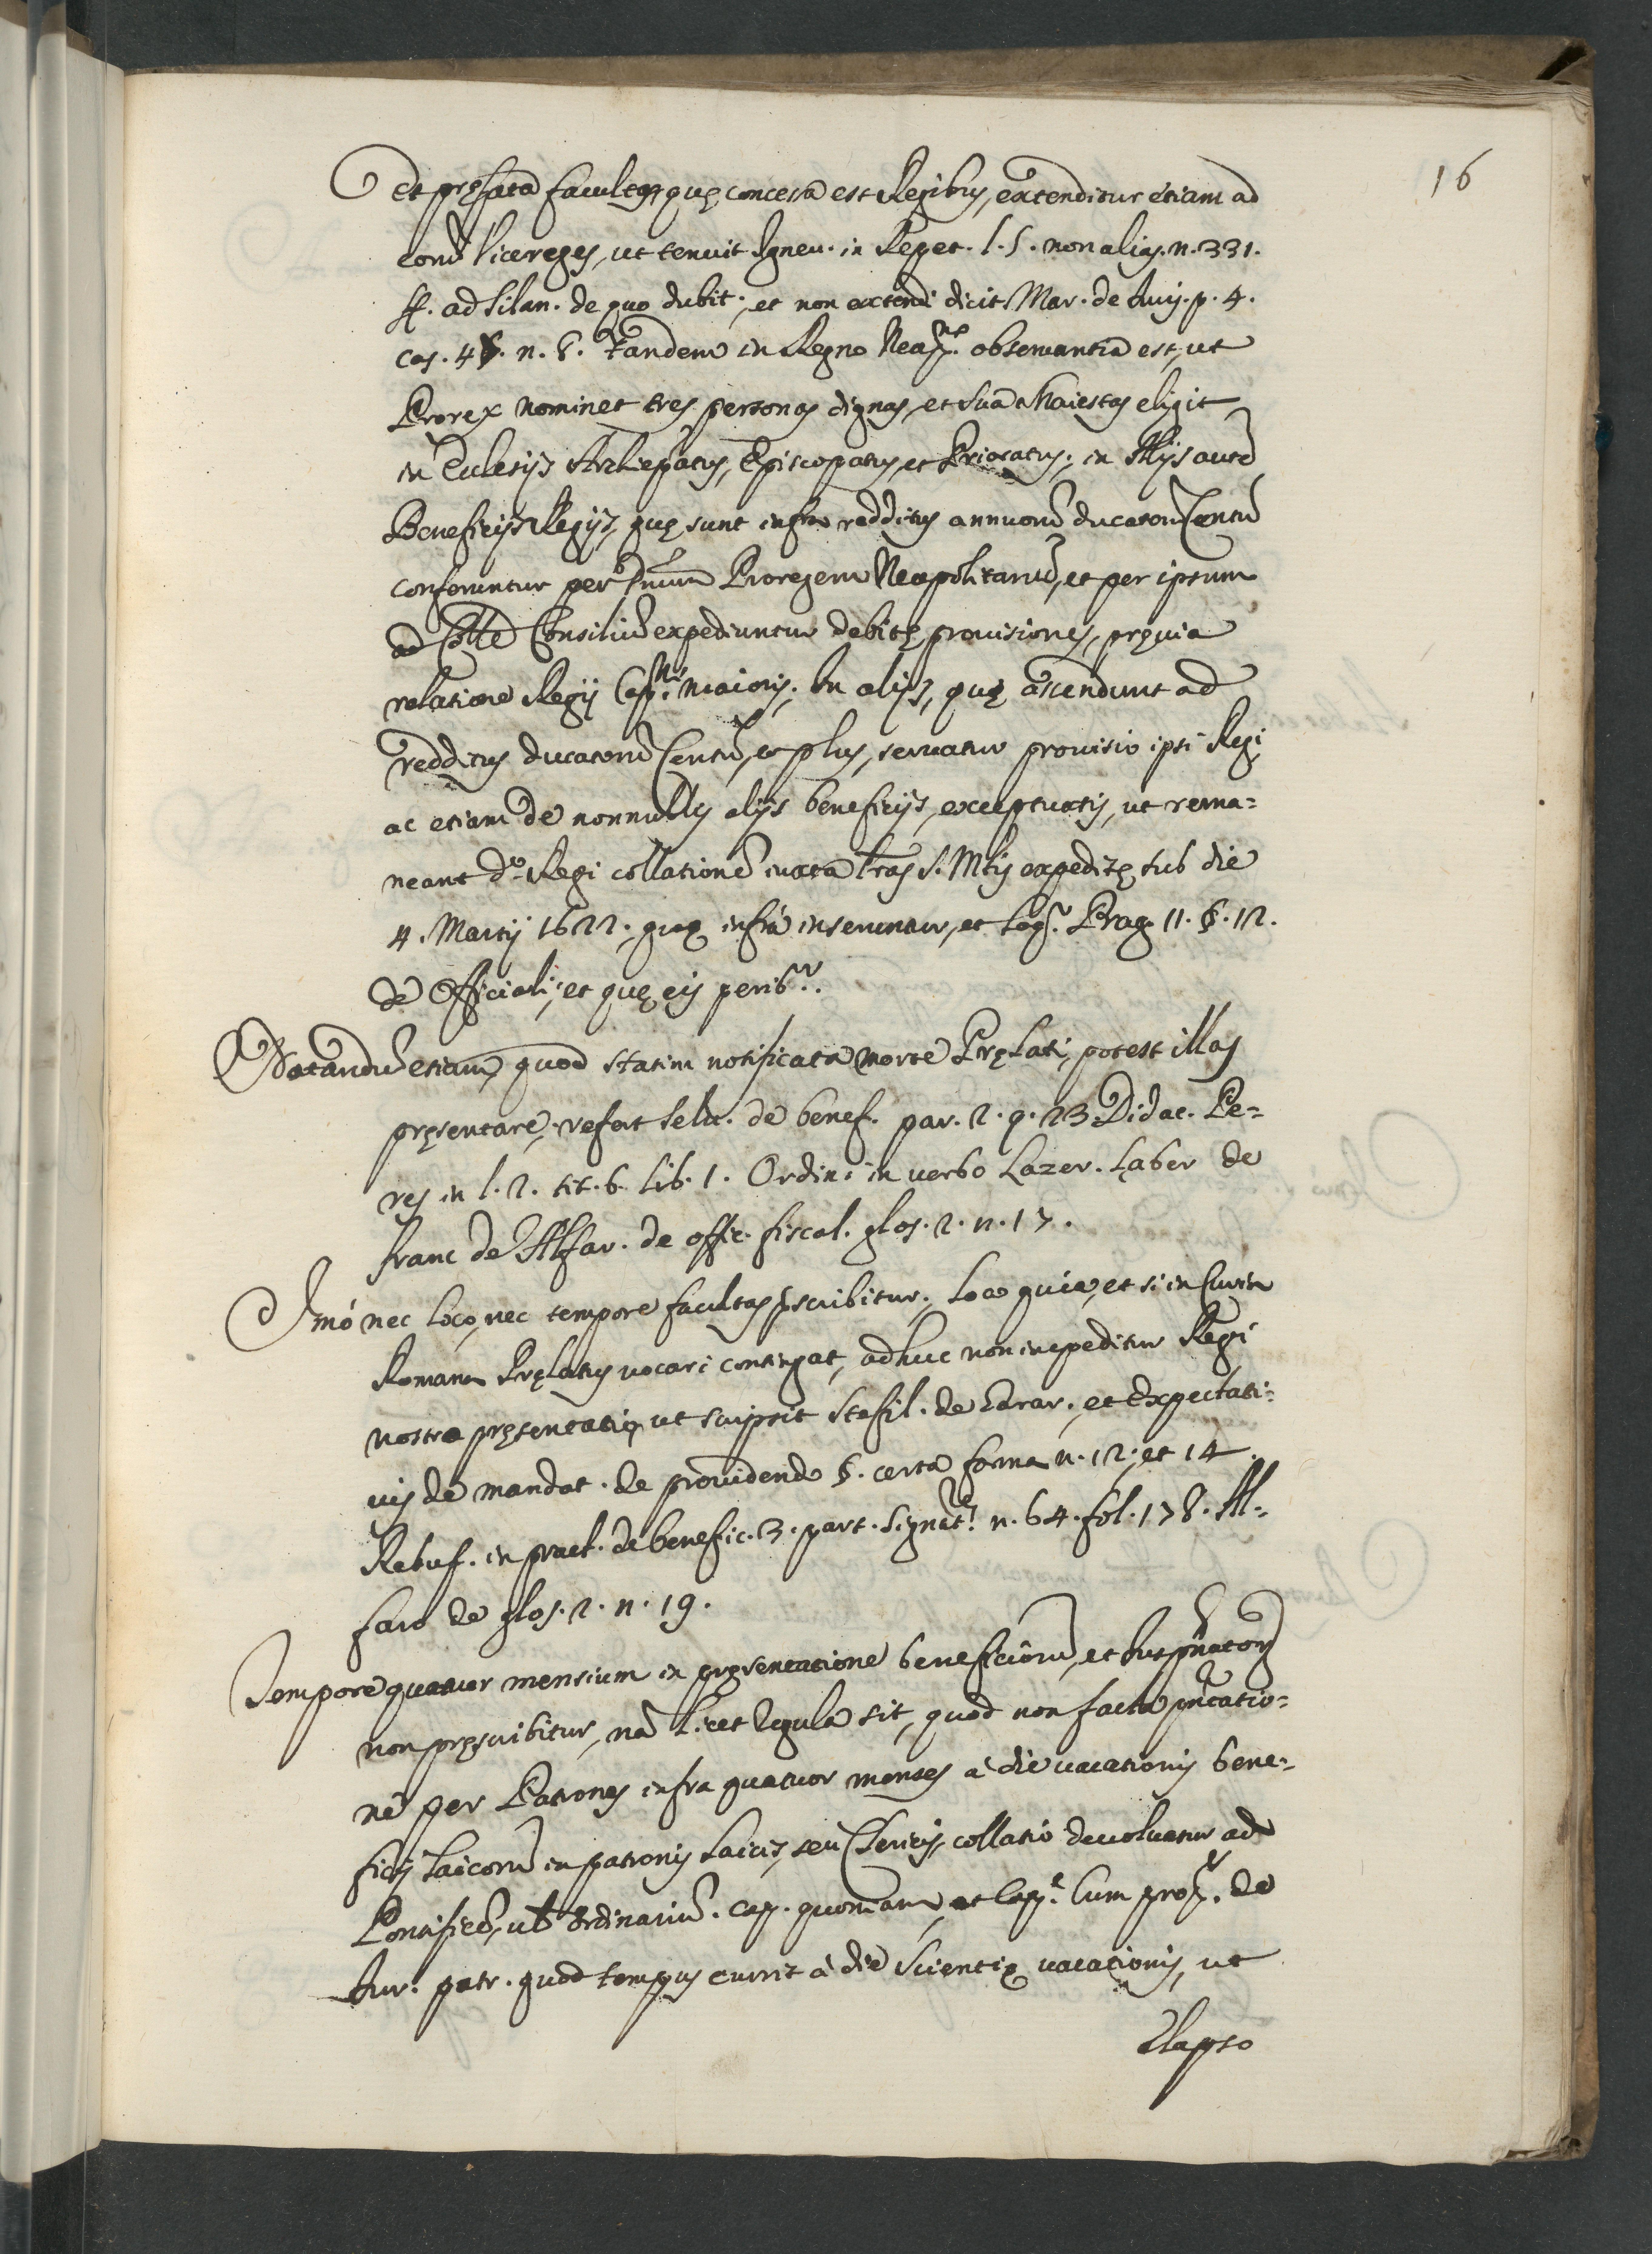 16
Et pręfata facultas quę concessa est Regibus, extenditur etiam ad
eorũ Vicereges, ut tenuit Igneu. in Repet. l. 5. non alias. n. 331.
ff. ad Silan. de quo dubit; et non extendi dicit Mar. de Avis. p. 4.
cas. 48. n. 8. Tandem in Regno Neap.no observantia est, ut
Prorex nominet tres personas dignas, et sua Maiestas eligit
in Eclesijs Archiepatus, Episcopatus, et Prioratus; in Alijs autẽ
Beneficijs Regijs, quę sunt infra redditus annuorũ ducatorũ Centũ
conferuntur per Dnum Proregem Neapolitanũ, et per ipsum
ad Colle Consiliũ expediuntur debitę prouisiones, pręuia
relatione Regij Cap.ni maioris. In alijs, quę ascendunt ad
redditus ducatorũ Centũ, et plus, seruatur prouisio ipsi Regi
ac etiam de nonnullis alijs beneficijs, exceptuatis, ut rema=
neant d.o Regi collationẽ iuxta lras S. Mtis expeditę sub die
4. Martij 1622. quę infra inseruntur, et leg.r Prag. 11. §. 12.
de Officiali; et quę eis perib.r.
Notandũ etiam, quod statim notificata morte Pręlati, potest illas
pręsentare, refert Selu. de benef. par. 2. q. 23 Didac. Pe=
res in l. 2. tit. 6. lib. 1. Ordin: in verbo Lazer. Laber de
franc de Alfar. de offic. fiscal. glos. 2. n. 17.
Imó nec loco, nec tempore facultas pscribitur; Loco quia, et si in Curia
Romana Prelatus vocari contingat, adhuc non impeditur Regi
nostro pręsentatio, ut scripsit Stafil. de Litrar. et Expectati=
uis de mandat. de prouidendo §. certa forma n. 12; et 14.
Rebuf. in pract. de benefic. 3. part. signat.e n. 64. fol. 178. Al=
faro de glos. 2. n. 19.
Tempore quatuor mensium in pręsentatione beneficiorũ, et Iuspñatorũ
non pręscribitur, nã licet Regula sit, quod non facta pñtatio=
nẽ per Patronos infra quatuor menses à die vacationis bene=
ficij laicorũ in patronis laicis, seu Clericis, collatio deuoluatur ad
Pontificẽ, ul Ordinariũ. Cap. quoniam, et Cap.e Cum prop. de
Iur. patr. quod tempus currit à die scientię vacationis, ut
Elapso